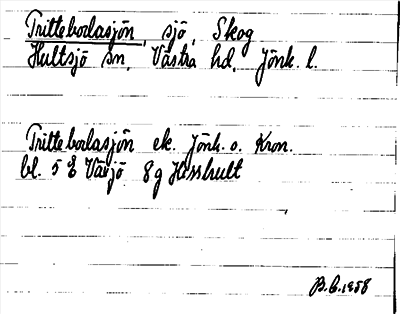 Trittebodasjön, sjö, Skog
Hultsjö sn, Västra hd, Jönk. l.
Trittebodasjön ek. Jönk. o. Kron.
bl. 5 E Växjö 8g Hisshult
B.C. 1958